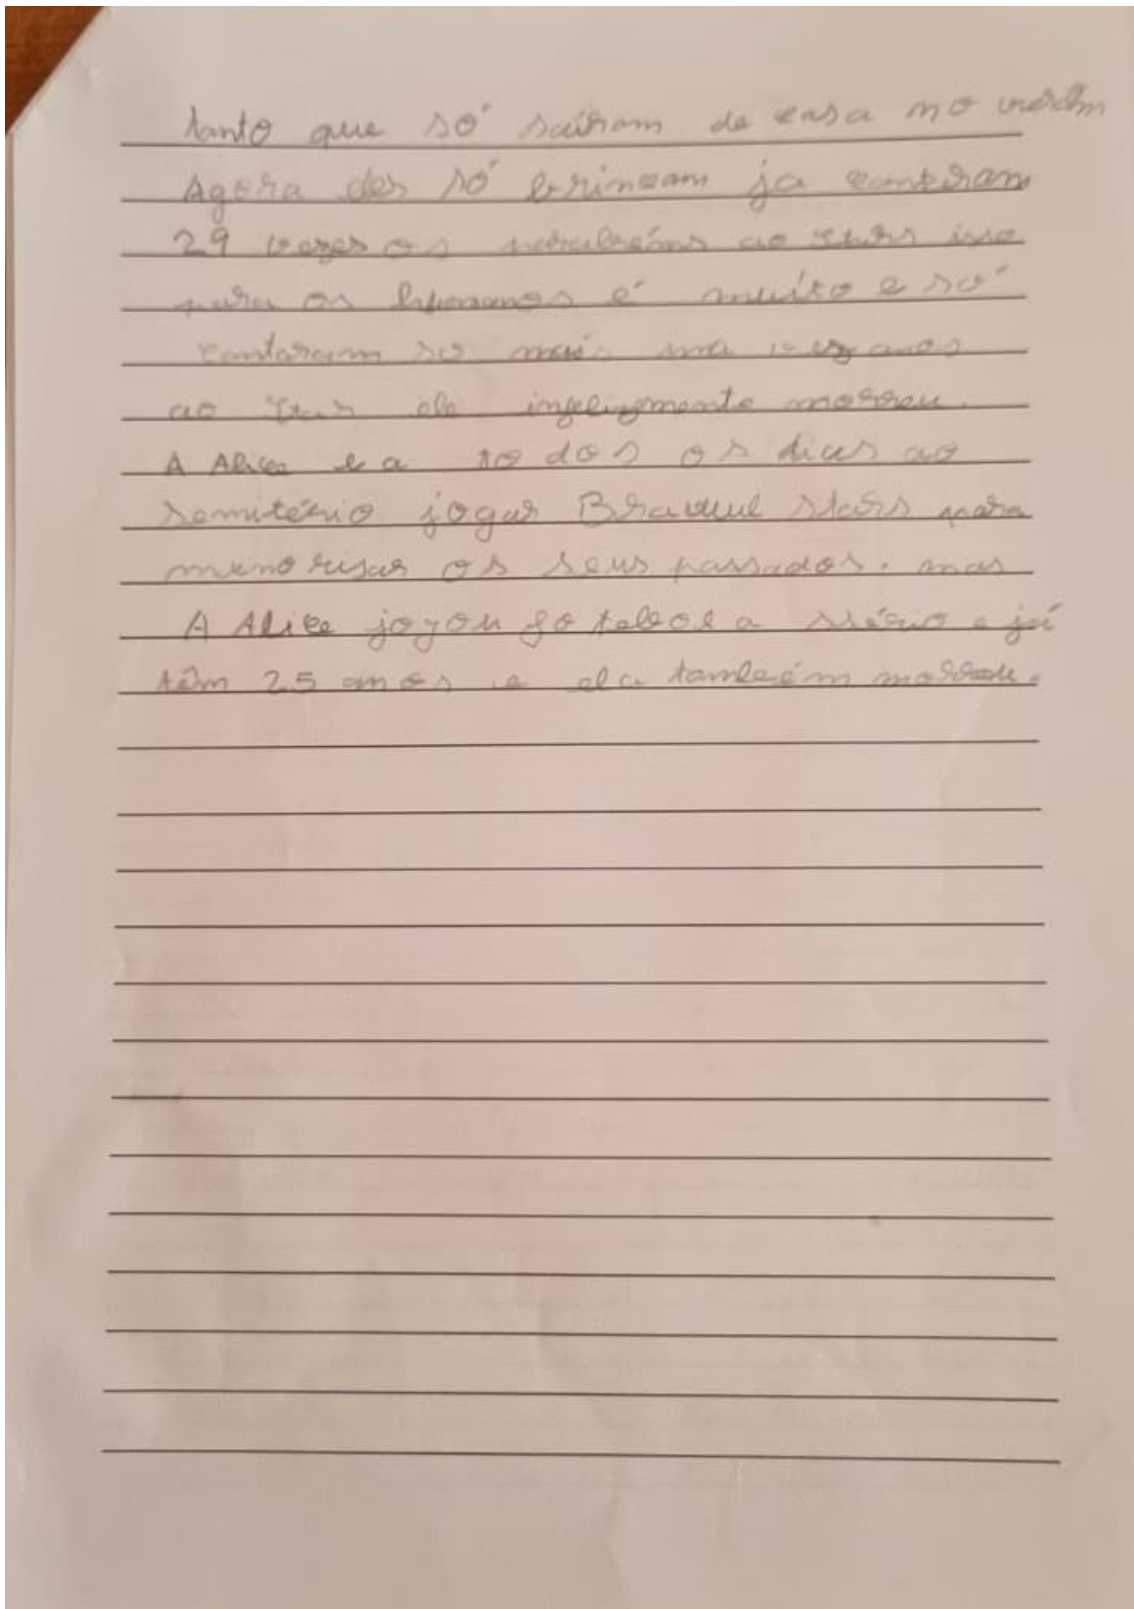 tanto que só saíram de casa no verão
Agora eles só brincam ja cantaram
29 vezes os parabréns ao isso
para os humanos é muito e só
cantaram so mais uma vez anos
ao ele infelizmente morreu.
A Alice ia todos os dias ao
semitério jogar Stars para
os seus passados. mas
A Alice jogou a sério e já
têm 25 anos e ela também morreu.